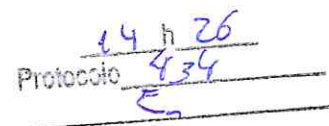 14 h 26
Protocolo 434